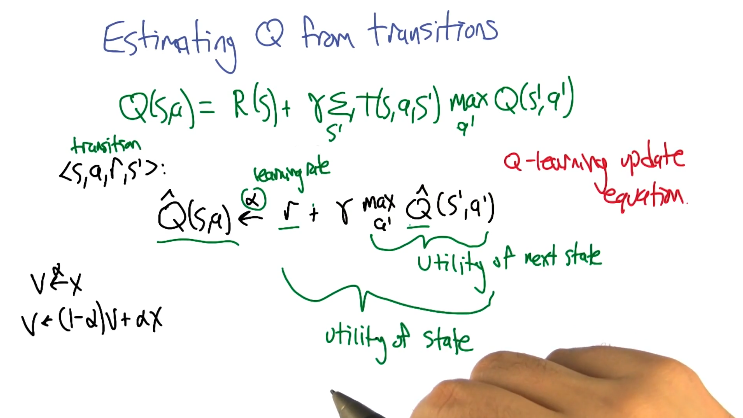 Estimating Q from transitions
Q(s,a) = R(s) + γ Σ_s' T(s,a,s') max_a' Q(s',a')
transition
<s,a,r,s'>:
learning rate
Q̂(s,a) ←^α r + γ max_a' Q̂(s',a')
Q-learning update
equation.
utility of next state
utility of state
V ←^α X
V ← (1-α)V + αX